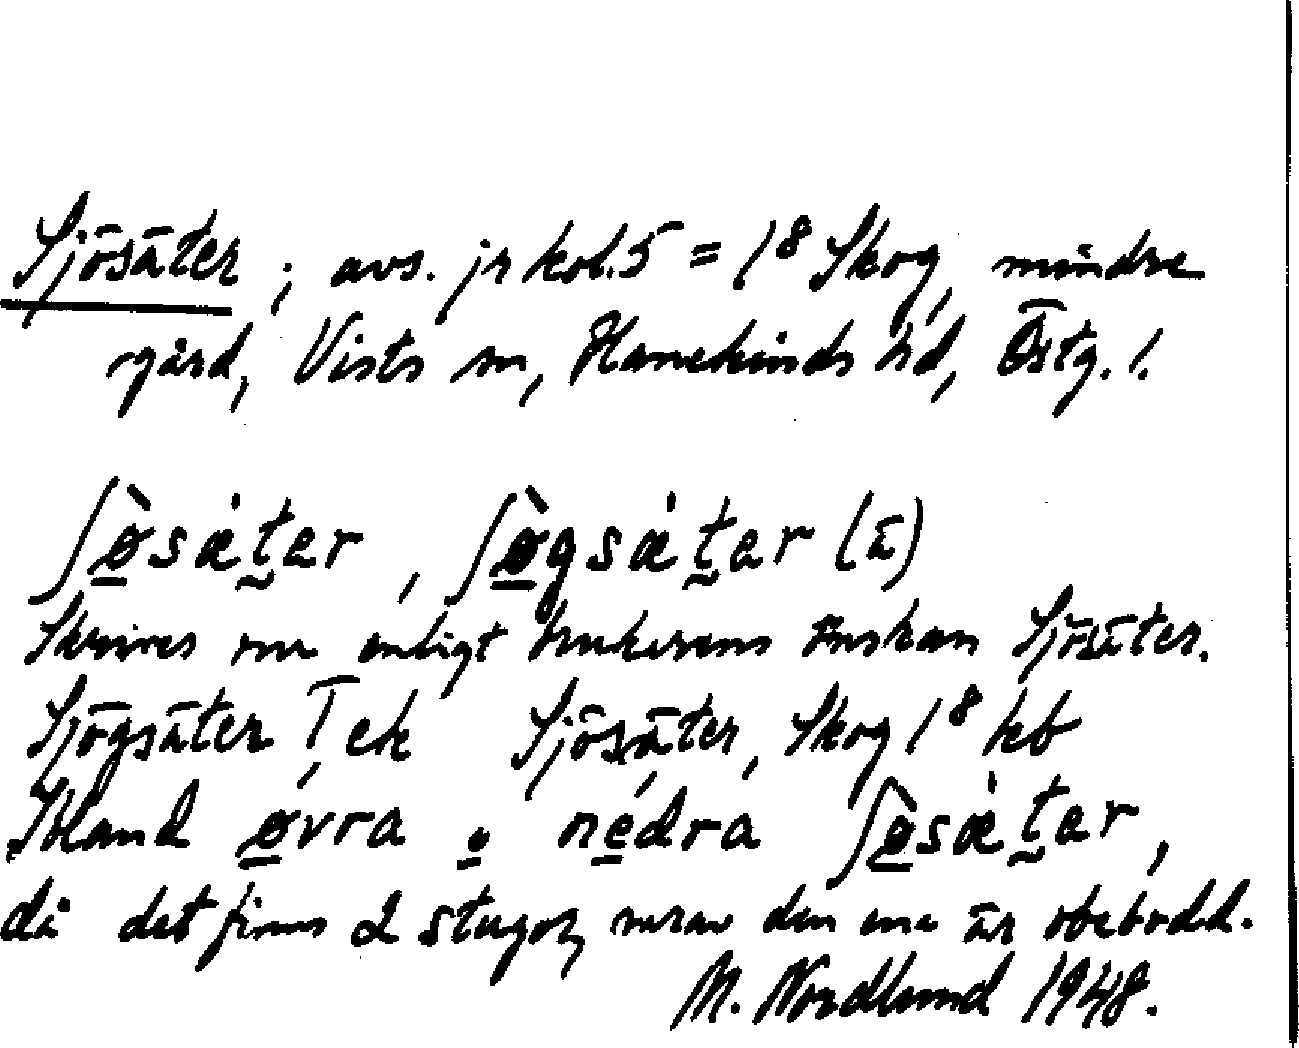 Sjösäter; avs. jr kol. 5 = 1⁸ Skog, mindre
gård, Vists sn, Hanekinds hd, Östg. l.
ʃø̀sætər, ʃø̀gsætər (ä)
Skrives nu enligt brukarens önskan Sjösäter.
Sjögsäter Tek Sjösäter, Skog 1⁸ kb
Ibland øvra o nedra ʃø̀sætər,
då det finns 2 stugor, varav den ena är obebodd.
M. Nordlund 1948.